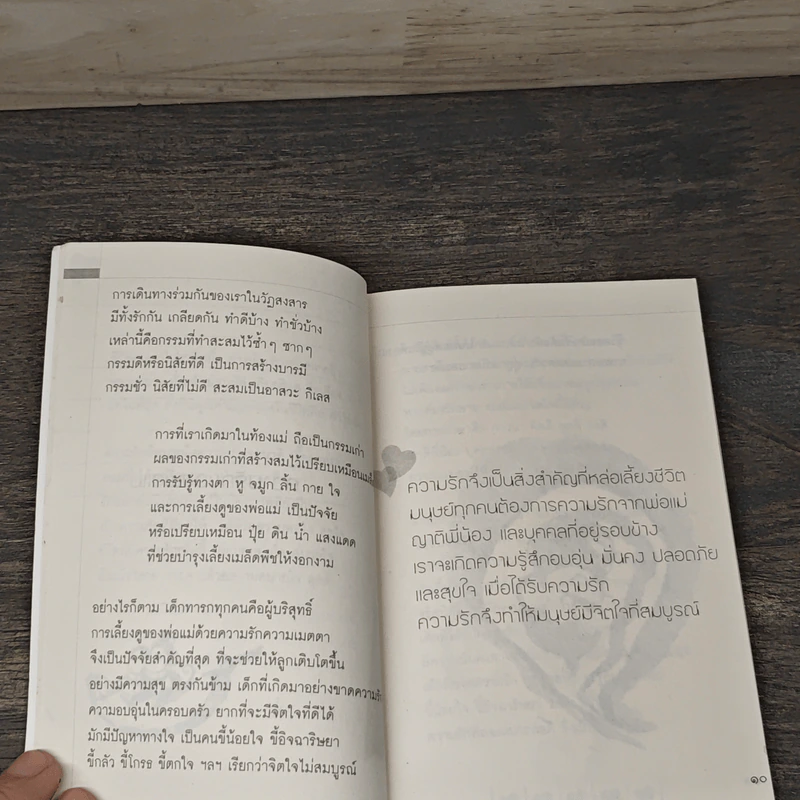 การเดินทางร่วมกันของเราในวัฏสงสาร
มีทั้งรักกัน เกลียดกัน ทำดีบ้าง ทำชั่วบ้าง
เหล่านี้คือกรรมที่ทำสะสมไว้ซ้ำๆ ซากๆ
กรรมดีหรือนิสัยที่ดี เป็นการสร้างบารมี
กรรมชั่ว นิสัยที่ไม่ดี สะสมเป็นอาสวะ กิเลส
การที่เราเกิดมาในท้องแม่ ถือเป็นกรรมเก่า
ผลของกรรมเก่าที่สร้างสมไว้เปรียบเหมือน
การรับรู้ทางตา หู จมูก ลิ้น กาย ใจ
และการเลี้ยงดูของพ่อแม่ เป็นปัจจัย
หรือเปรียบเหมือน ปุ๋ย ดิน น้ำ แสงแดด
ที่ช่วยบำรุงเลี้ยงเมล็ดพืชให้งอกงาม
อย่างไรก็ตาม เด็กทารกทุกคนคือผู้บริสุทธิ์
การเลี้ยงดูของพ่อแม่ด้วยความรักความเมตตา
จึงเป็นปัจจัยสำคัญที่สุด ที่จะช่วยให้ลูกเติบโตขึ้น
อย่างมีความสุข ตรงกันข้าม เด็กที่เกิดมาอย่างขาดความรัก
ความอบอุ่นในครอบครัว ยากที่จะมีจิตใจที่ดีได้
มักมีปัญหาทางใจ เป็นคนขี้น้อยใจ ขี้อิจฉาริษยา
ขี้กลัว ขี้โกรธ ขี้ตกใจ ฯลฯ เรียกว่าจิตใจไม่สมบูรณ์
ความรักจึงเป็นสิ่งสำคัญที่หล่อเลี้ยงชีวิต
มนุษย์ทุกคนต้องการความรักจากพ่อแม่
ญาติพี่น้อง และบุคคลที่อยู่รอบข้าง
เราจะเกิดความรู้สึกอบอุ่น มั่นคง ปลอดภัย
และสุขใจ เมื่อได้รับความรัก
ความรักจึงทำให้มนุษย์มีจิตใจที่สมบูรณ์
๑๐